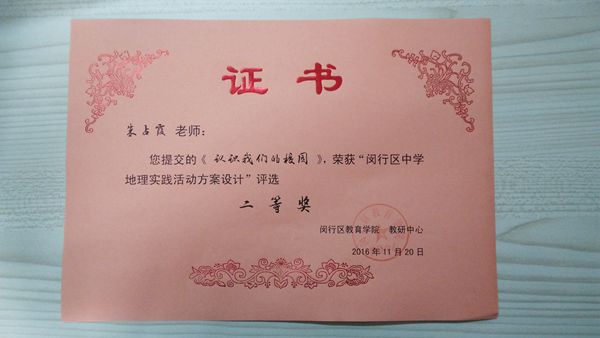 证书
朱占霞 老师：
您提交的《 认识我们的校园 》，荣获“闵行区中学
地理实践活动方案设计”评选
二等奖
闵行区教育学院 教研中心
2016年11月20日